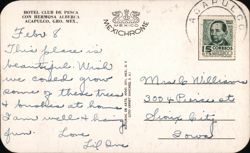 HOTEL CLUB DE PESCA
CON HERMOSA ALBERCA
ACAPULCO, GRO. MEX.
MEXICO
MEXICHROME
ACAPULCO
CORREOS
Feb 8
This place is
beautiful. Wish
we could grow
some of these trees
& bushes at home
I am well & having
fun. Love
Mrs C Willison
300 4 Pierce st
Sioux City
Iowa